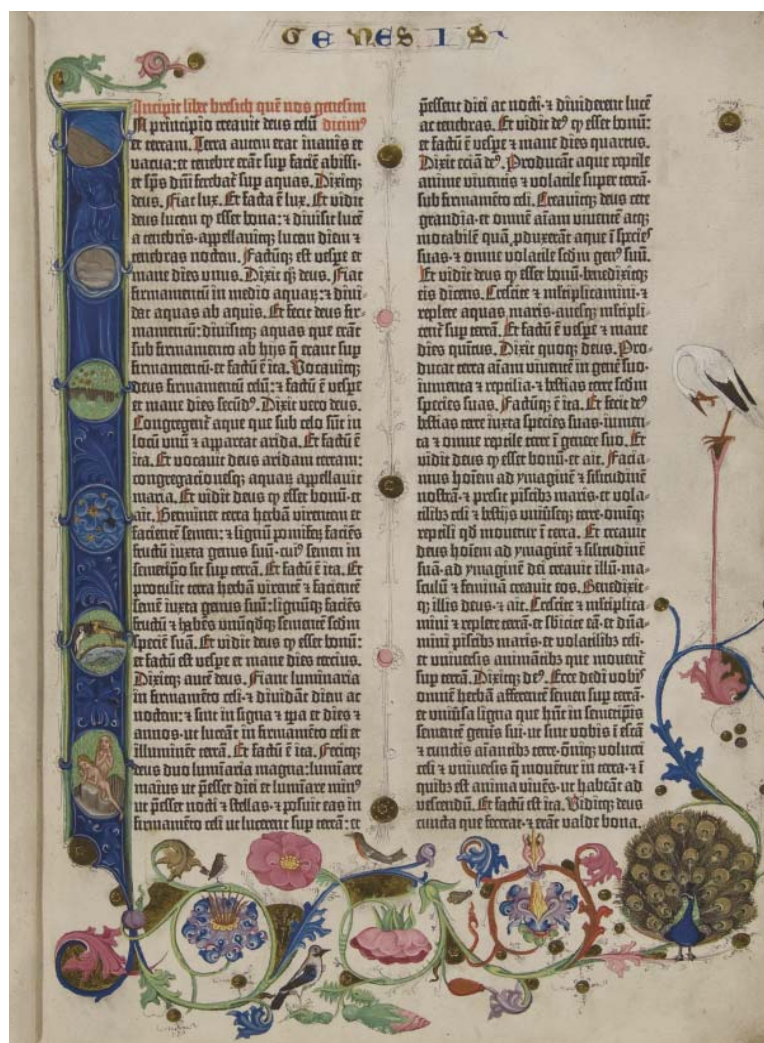 GENESIS
Incipit liber bresith quē nos genesim
IN principio creauit deus celū dicimꝰ
et terram. Terra autem erat inanis et
vacua: et tenebre erāt sup faciē abissi:
et sp̄s dn̄i ferebat̄ sup aquas. Dixitqꝫ
deus. Fiat lux. Et facta ē lux. Et vidit
deus lucem ꝙ esset bona: ⁊ diuisit lucē
a tenebris· appellauitqꝫ lucem diem ⁊
tenebras noctem. Factūqꝫ est vespe et
mane dies vnus. Dixit qꝫ deus. Fiat
firmamentū in medio aquaꝝ: ⁊ diui-
dat aquas ab aquis. Et fecit deus fir-
mamentū: diuisitqꝫ aquas que erāt
sub firmamento ab hijs q̄ erant sup
firmamentū· et factū ē ita. Vocauitqꝫ
deus firmamentū celū: ⁊ factū ē vespe
et mane dies secūdꝰ. Dixit vero deus.
Congregent̄ aque que sub celo sūt in
locū vnū ⁊ appareat arida. Et factū ē
ita. Et vocauit deus aridam terram:
congregacionesqꝫ aquaꝝ appellauit
maria. Et vidit deus ꝙ esset bonū· et
ait. Germinet terra herbā virentem et
facientē semen: ⁊ lignū pomifeꝝ faciēs
fructū iuxta genus suū· cuiꝰ semen in
semetipo sit sup terrā. Et factū ē ita. Et
protulit terra herbā virentē ⁊ facientē
semē iuxta genus suū: lignūqꝫ faciēs
fructū ⁊ habēs vnūqdqꝫ sementē scdm
speciē suā. Et vidit deus ꝙ esset bonū:
et factū est vespe et mane dies tercius.
Dixitqꝫ autē deus. Fiant luminaria
in firmamēto celi· ⁊ diuidāt diem ac
noctem: ⁊ sint in signa ⁊ tpa et dies ⁊
annos· ut luceāt in firmamēto celi et
illuminēt terrā. Et factū ē ita. Fecitqꝫ
deus duo luminaria magna: luminare
maius ut pesset diei et luminare minꝰ
ut pesset nocti ⁊ stellas· ⁊ posuit eas in
firmamēto celi ut lucerent sup terrā: et
pessent diei ac nocti· ⁊ diuiderent lucē
ac tenebras. Et vidit deꝰ ꝙ esset bonū:
et factū ē vespe ⁊ mane dies quartus.
Dixit eciā deꝰ. Producāt aque reptile
anime viuentis ⁊ volatile super terrā·
sub firmamēto celi. Creauitqꝫ deus cete
grandia· et omnē aīam viuentē atqꝫ
motabilē quā pduxerāt aque ī species
suas· ⁊ omne volatile scdm genꝰ suū.
Et vidit deus ꝙ esset bonū· benedixitqꝫ
eis dicens. Crescite ⁊ mltiplicamini· ⁊
replete aquas maris· auesqꝫ mltipli-
cent̄ sup terrā. Et factū ē vespe ⁊ mane
dies quītus. Dixit quoqꝫ deus. Pro-
ducat terra aīam viuentē in genē suo·
iumenta ⁊ reptilia· ⁊ bestias terre scdm
species suas. Factūqꝫ ē ita. Et fecit deꝰ
bestias terre iuxta species suas· iumen-
ta ⁊ omne reptile terre ī genere suo. Et
vidit deus ꝙ esset bonū· et ait. Facia-
mus hoīem ad ymaginē ⁊ silitudinē
nostrā· ⁊ presit piscibꝫ maris· et vola-
tilibꝫ celi ⁊ bestijs vniūseqꝫ terre· omīqꝫ
reptili qd mouet̄ ī terra. Et creauit
deus hoīem ad ymaginē ⁊ silitudinē
suā· ad ymaginē dei creauit illū· ma-
sculū ⁊ feminā creauit eos. Benedixit-
qꝫ illis deus· ⁊ ait. Crescite ⁊ mltiplica-
mini ⁊ replete terrā· et sbicite eā· et dn̄a-
mini piscibꝫ maris· et volatilibꝫ celi·
et vniuersis animātibꝫ que mouent̄
sup terrā. Dixitqꝫ deꝰ. Ecce dedi vobis
omnē herbā afferentē semen sup terrā·
et vniūsa ligna que hn̄t in semetipis
sementē genis sui· ut sint vobis ī escā
⁊ cunctis aīantibꝫ terre· om̄iqꝫ volucri
celi ⁊ vniuersis q̄ mouent̄ in terra· ⁊ ī
quibꝫ est anima viuēs· ut habeāt ad
vescendū. Et factū est ita. Viditqꝫ deus
cuncta que fecerat· ⁊ erāt valde bona.